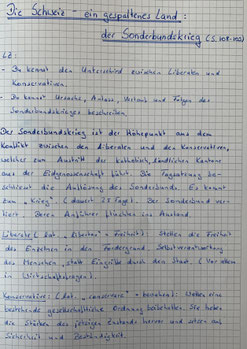 Die Schweiz - ein gespaltenes Land:
der Sonderbundskrieg (S. 108-109)
LZ:
- Du kennst den Unterschied zwischen Liberalen und
Konservativen.
- Du kannst Ursache, Anlass, Verlauf und Folgen des
Sonderbundskrieges beschreiben
Der Sonderbundskrieg ist der Höhepunkt aus dem
Konflikt zwischen den Liberalen und den Konservativen,
welcher zum Austritt der katholisch, ländlichen Kantone
aus der Eidgenossenschaft führt. Die Tagsatzung be-
schliesst die Auflösung des Sonderbunds. Es kommt
zum "Krieg". (dauert 27 Tage). Der Sonderbund ver-
liert. Deren Anführer flüchten ins Ausland.
Liberale (lat. "libertas" = Freiheit): Stellen die Freiheit
des Einzelnen in den Vordergrund. Selbstverantwortung
des Menschen statt Eingriffe durch den Staat. (Vor allem
in Wirtschaftsfragen).
Konservative: (lat. "conservare" = bewahren): Wollen eine
bestehende gesellschaftliche Ordnung beibehalten. Sie heben
die Stärken des jetzigen Zustands hervor und setzen auf
Sicherheit und Beständigkeit.